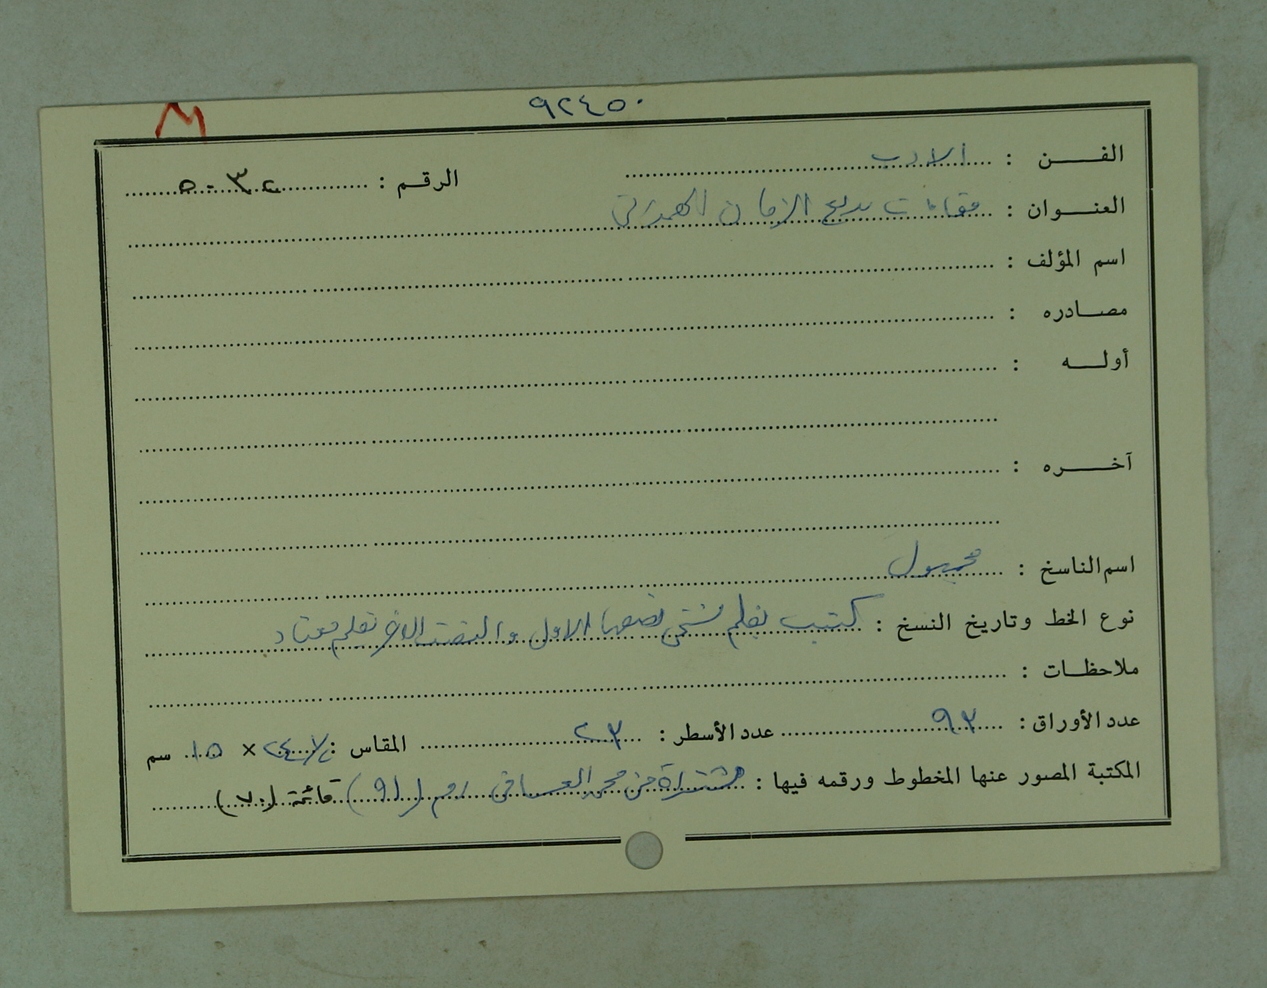 ٩٢٤٥٠
M
الفن : الادب
الرقم : ٥٠٣٤
العنوان : مقامات بديع الزمان الهمذاني
اسم المؤلف :
مصادره :
أوله :
آخره :
اسم الناسخ : مجهول
نوع الخط وتاريخ النسخ : كتب بقلم نسخي نصفها الاول والنصف الاخر بقلم معتاد
ملاحظات :
عدد الأوراق : ٩٣ عدد الأسطر : ٢٣ المقاس : × ١٥ سم
المكتبة المصور عنها المخطوط ورقمه فيها : مشتراة من محمد العسافي رقم (٩١) قائمة (٧٠)